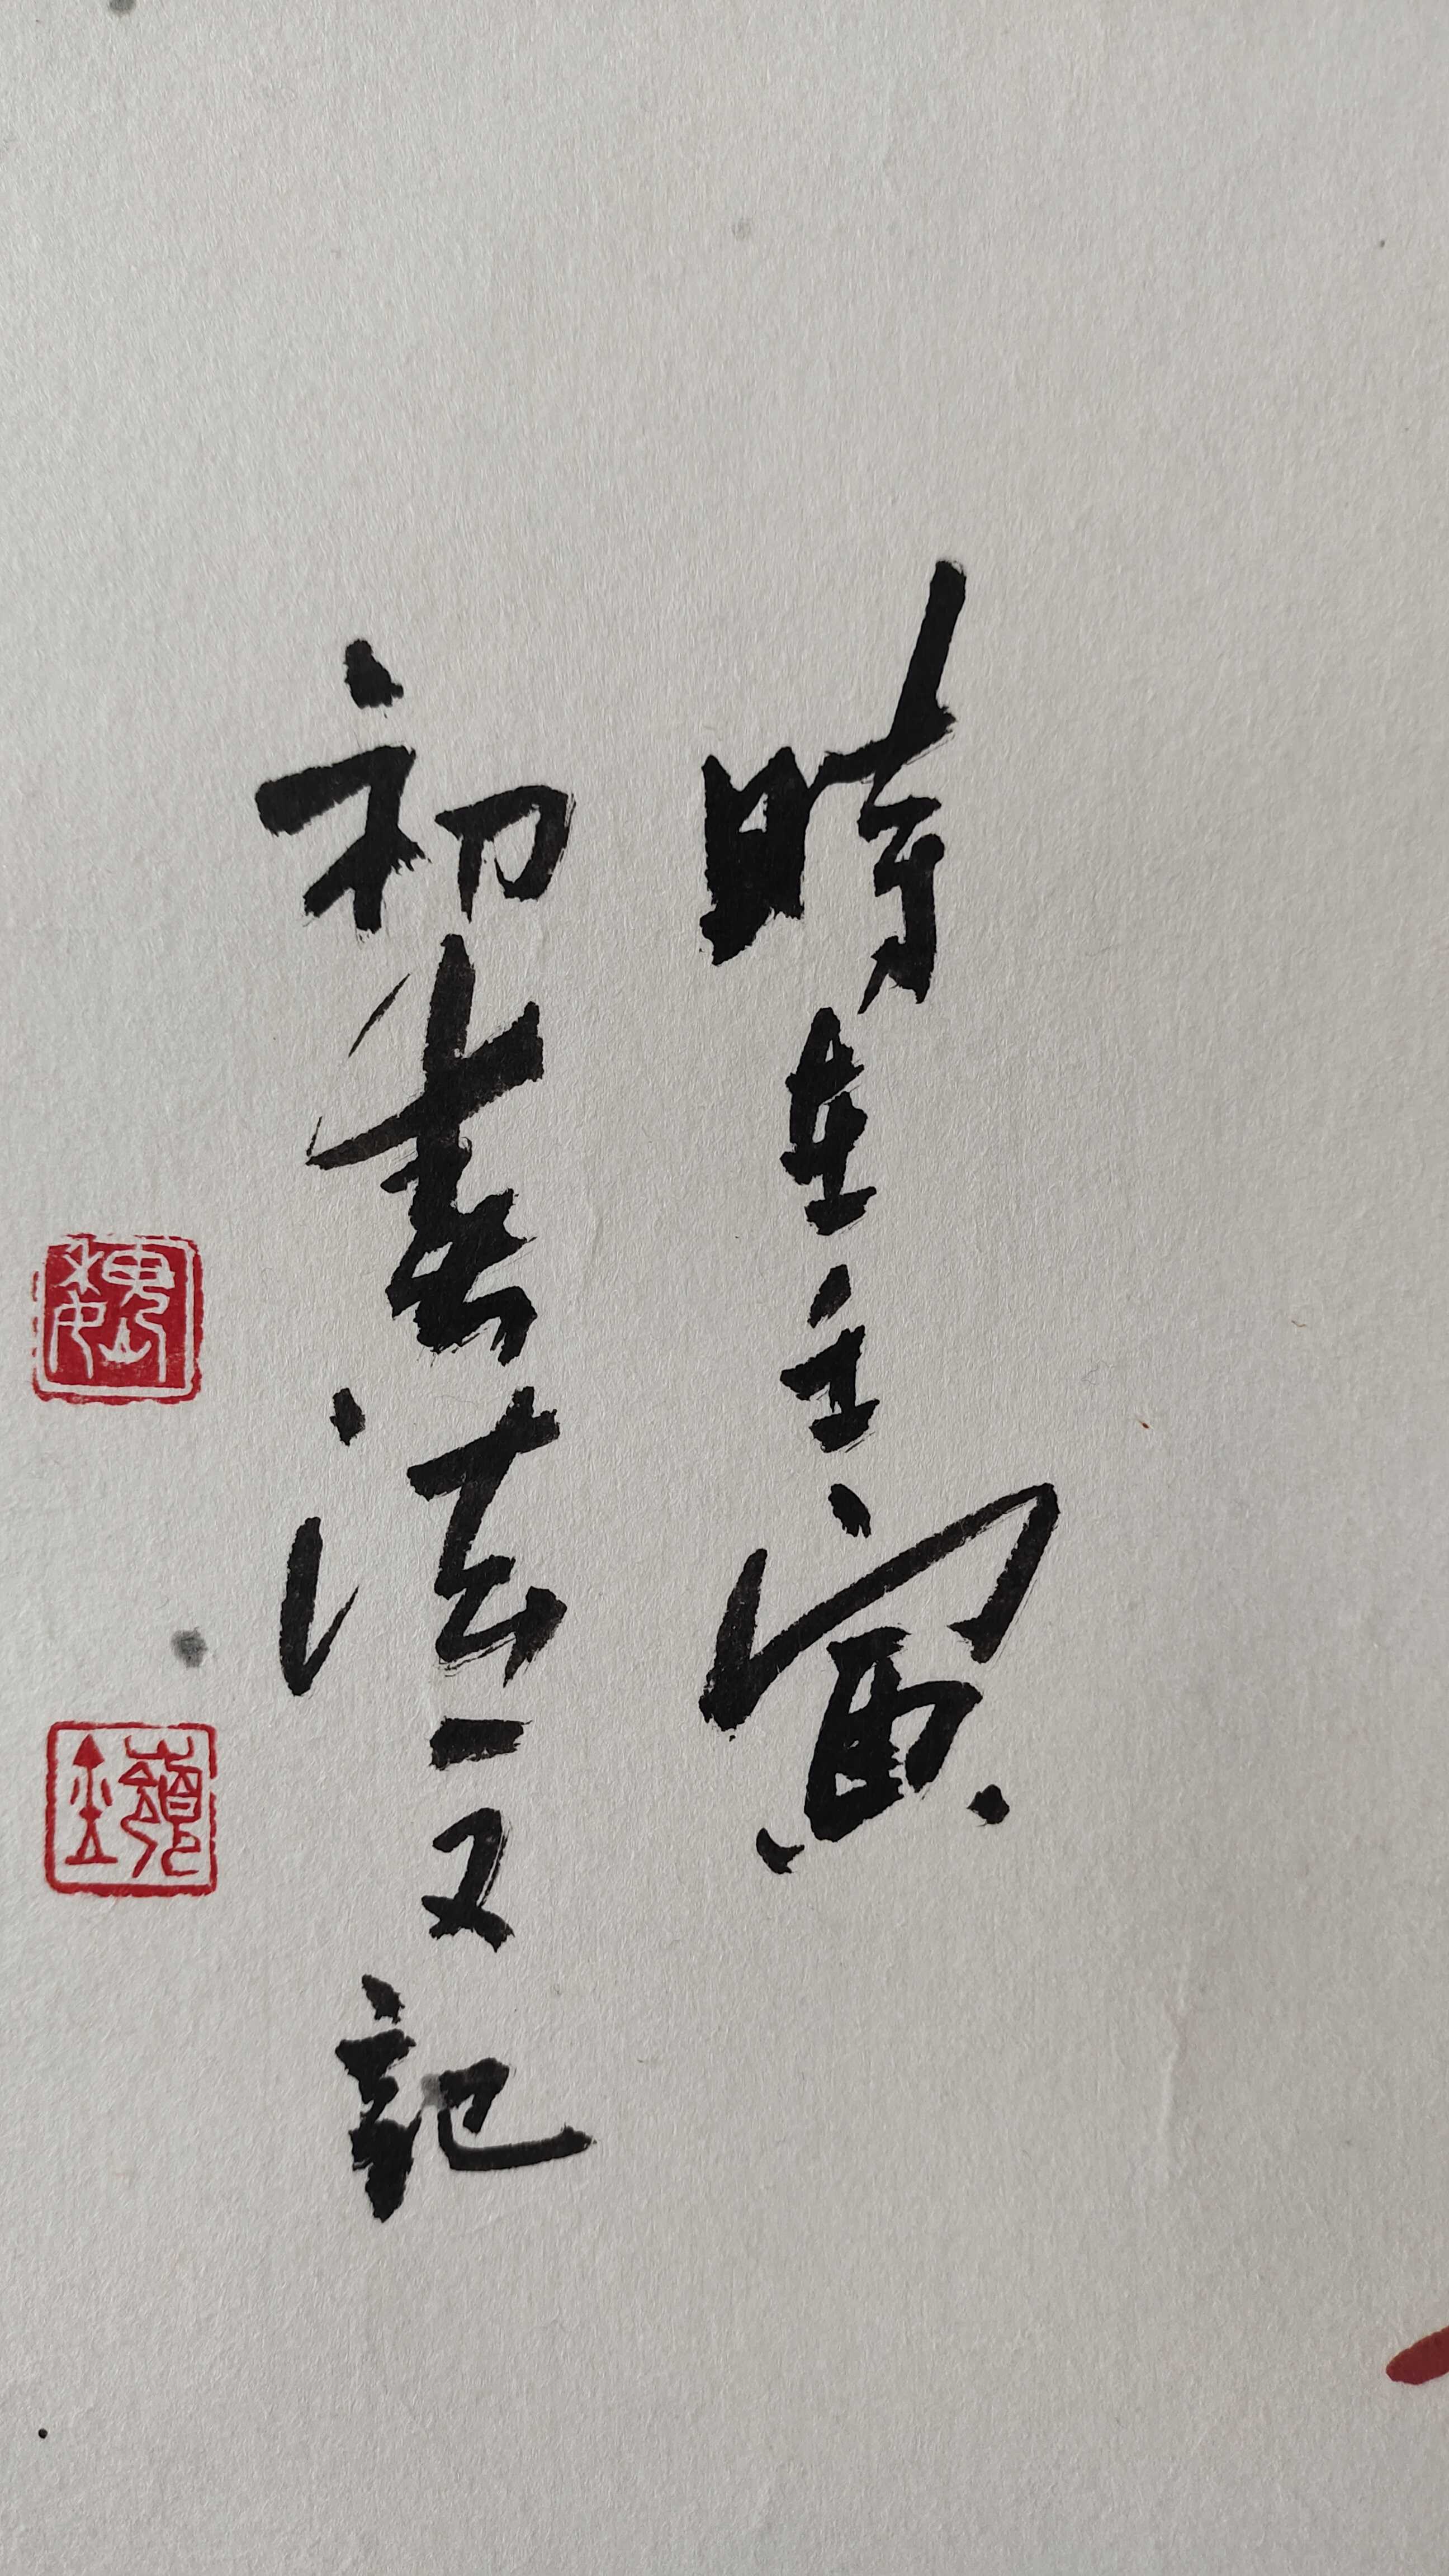 時在壬寅
初春法一又記
魏